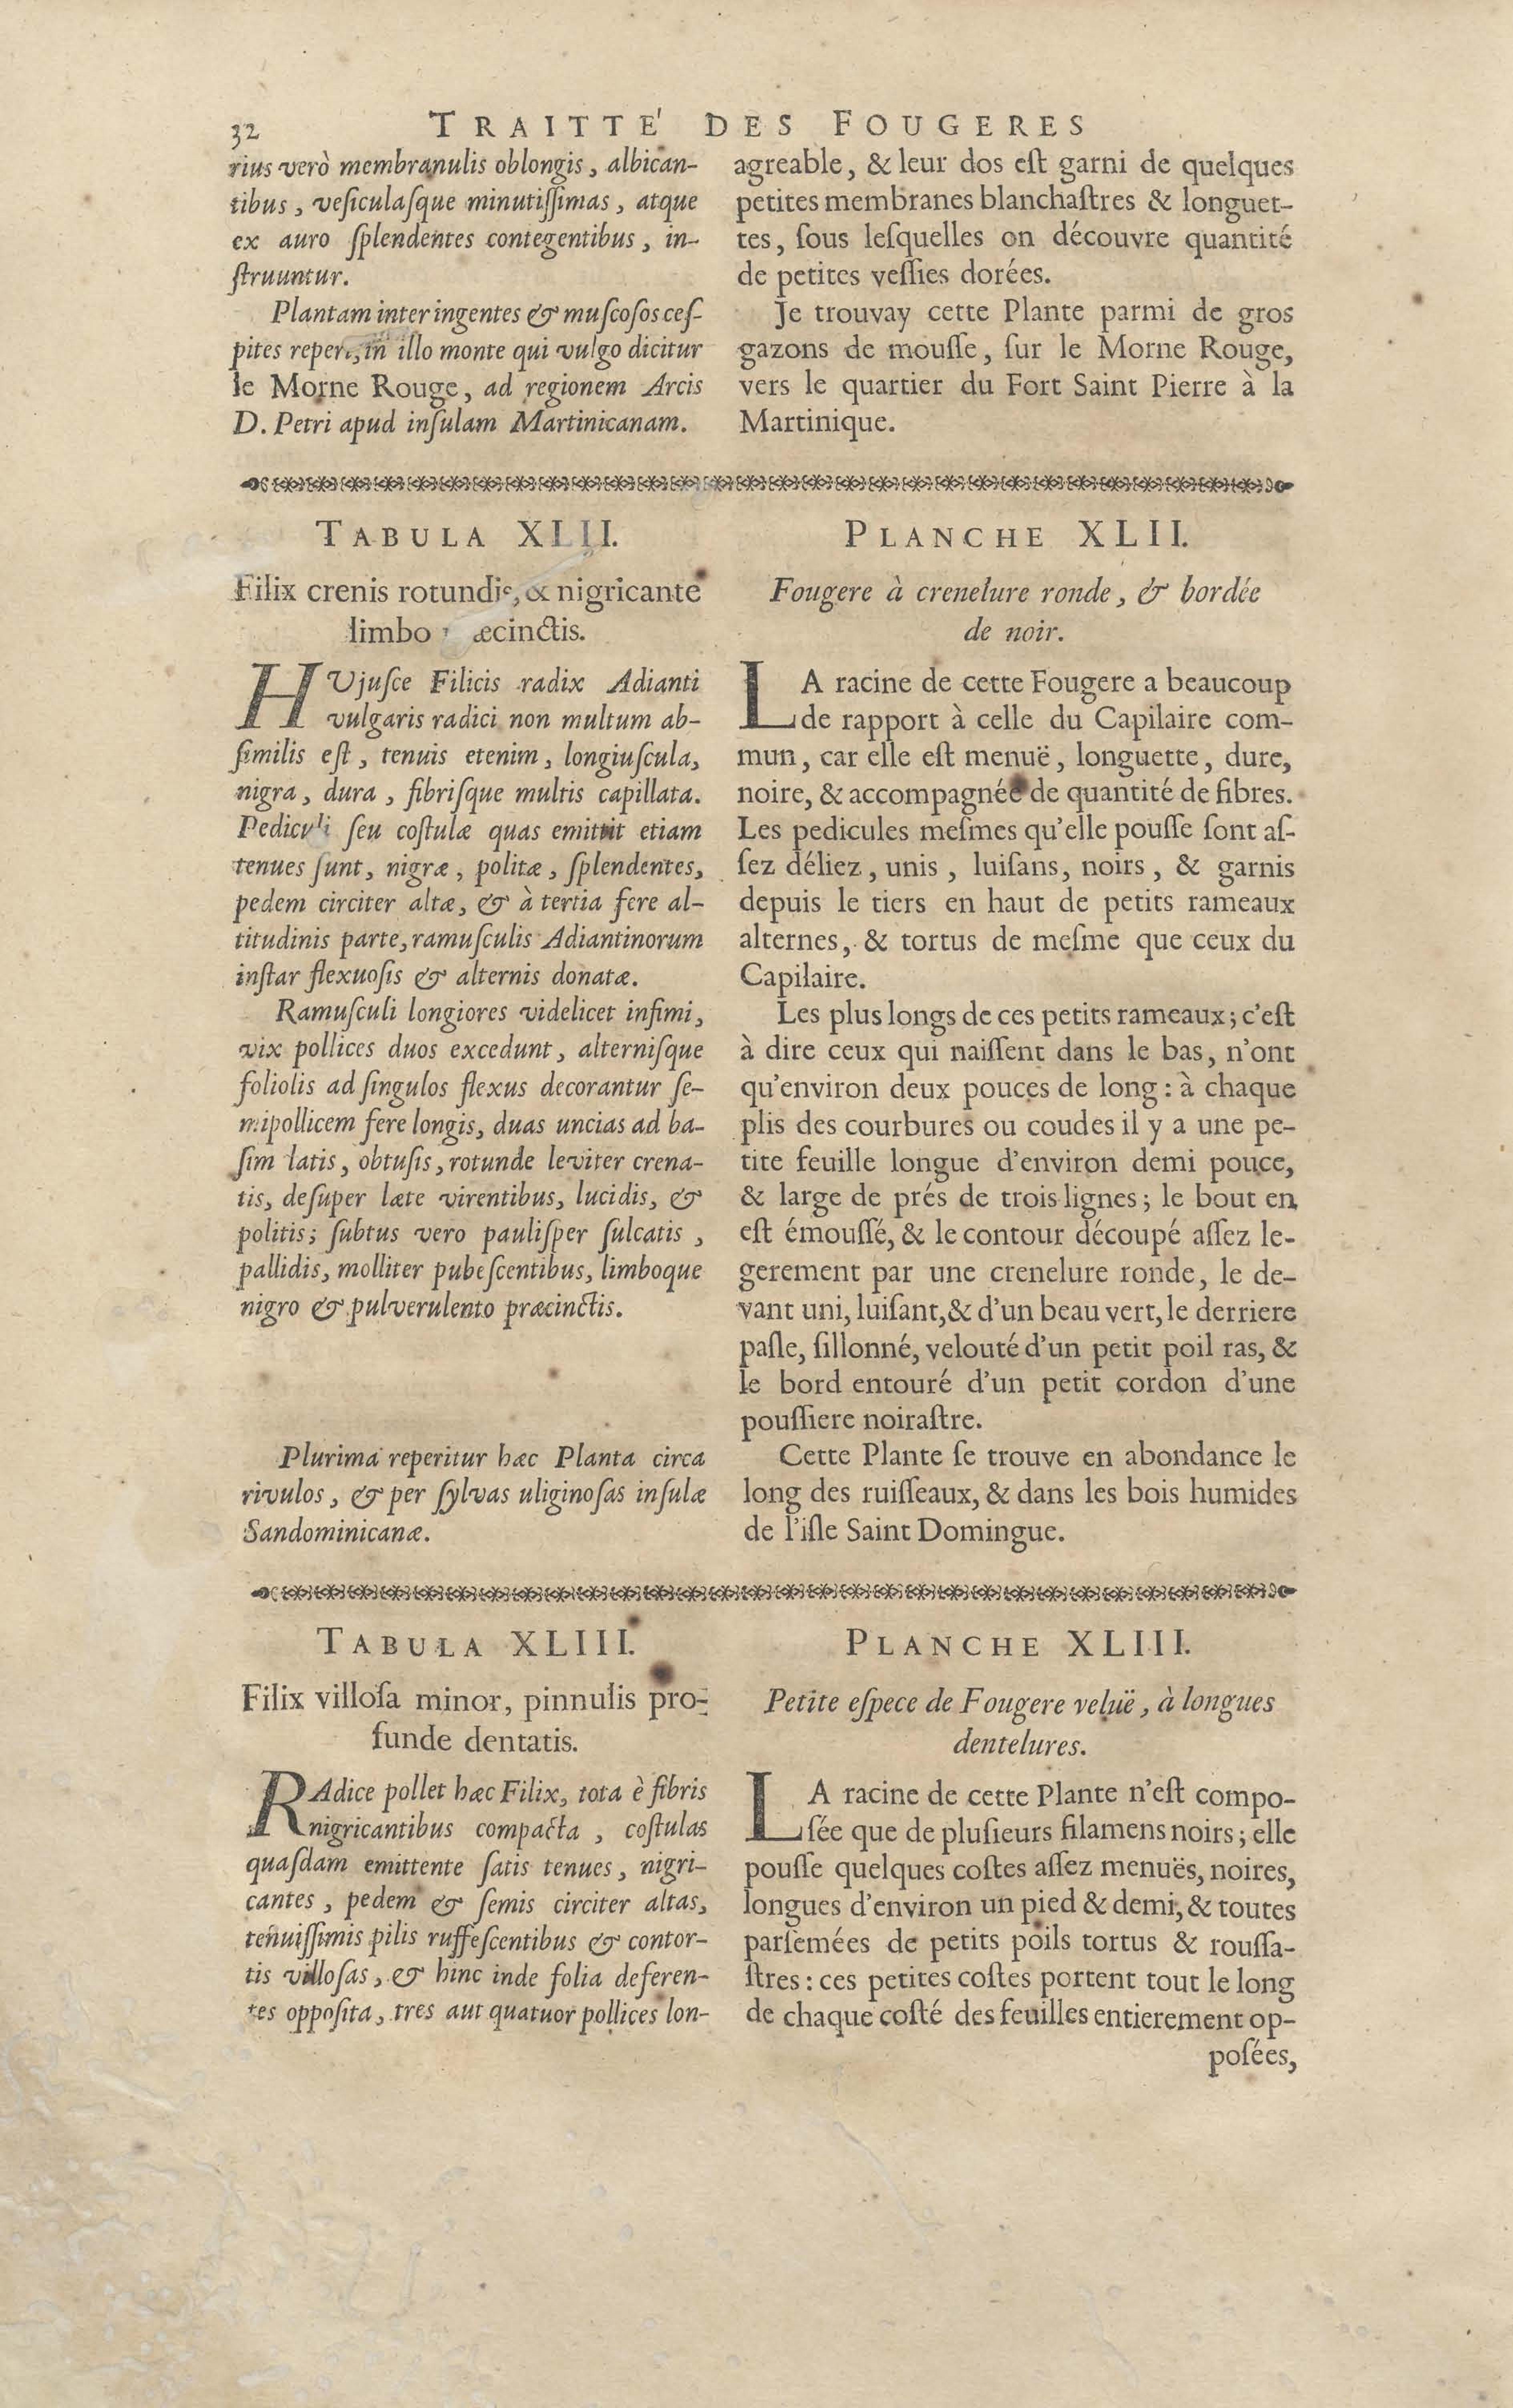 32 TRAITTE' DES FOUGERES
rius verò membranulis oblongis, albican-
tibus, veſiculaſque minutiſſimas, atque
ex auro ſplendentes contegentibus, in-
ſtruuntur.
Plantam inter ingentes & muſcoſos ceſ-
pites in illo monte qui vulgo dicitur
le Morne Rouge, ad regionem Arcis
D. Petri apud inſulam Martinicanam.
agreable, & leur dos eſt garni de quelques
petites membranes blanchaſtres & longuet-
tes, ſous leſquelles on découvre quantité
de petites veſſies dorées.
Je trouvay cette Plante parmi de gros
gazons de mouſſe, ſur le Morne Rouge,
vers le quartier du Fort Saint Pierre à la
Martinique.
TABULA XLII.
Filix crenis rotundis, & nigricante
limbo
HUjuſce Filicis radix Adianti
vulgaris radici non multum ab-
ſimilis eſt, tenuis etenim, longiuſcula,
nigra, dura, fibriſque multis capillata.
Pediculi ſeu coſtulæ quas emittit etiam
tenues ſunt, nigræ, politæ, ſplendentes,
pedem circiter altæ, & à tertia fere al-
titudinis parte, ramuſculis Adiantinorum
inſtar flexuoſis & alternis donatæ.
Ramuſculi longiores videlicet infimi,
vix pollices duos excedunt, alterniſque
foliolis ad ſingulos flexus decorantur ſe-
mipollicem fere longis, duas uncias ad ba-
ſim latis, obtuſis, rotunde leviter crena-
tis, deſuper læte virentibus, lucidis, &
politis; ſubtus vero pauliſper ſulcatis,
pallidis, molliter pubeſcentibus, limboque
nigro & pulverulento præcinctis.
Plurima reperitur hæc Planta circa
rivulos, & per ſylvas uliginoſas inſulæ
Sandominicanæ.
PLANCHE XLII.
Fougere à crenelure ronde, & bordée
de noir.
LA racine de cette Fougere a beaucoup
de rapport à celle du Capilaire com-
mun, car elle eſt menuë, longuette, dure,
noire, & accompagnée de quantité de fibres.
Les pedicules meſmes qu'elle pouſſe ſont aſ-
ſez déliez, unis, luiſans, noirs, & garnis
depuis le tiers en haut de petits rameaux
alternes, & tortus de meſme que ceux du
Capilaire.
Les plus longs de ces petits rameaux; c'eſt
à dire ceux qui naiſſent dans le bas, n'ont
qu'environ deux pouces de long: à chaque
plis des courbures ou coudes il y a une pe-
tite feuille longue d'environ demi pouce,
& large de prés de trois lignes; le bout en
eſt émouſſé, & le contour découpé aſſez le-
gerement par une crenelure ronde, le de-
vant uni, luiſant, & d'un beau vert, le derriere
paſle, ſillonné, velouté d'un petit poil ras, &
le bord entouré d'un petit cordon d'une
pouſſiere noiraſtre.
Cette Plante ſe trouve en abondance le
long des ruiſſeaux, & dans les bois humides
de l'iſle Saint Domingue.
TABULA XLIII.
Filix villoſa minor, pinnulis pro-
funde dentatis.
RAdice pollet hæc Filix, tota è fibris
nigricantibus compacta, coſtulas
quaſdam emittente ſatis tenues, nigri-
cantes, pedem & ſemis circiter altas,
tenuiſſimis pilis ruffeſcentibus & contor-
tis villoſas, & hinc inde folia deferen-
tes oppoſita, tres aut quatuor pollices lon-
PLANCHE XLIII.
Petite eſpece de Fougere veluë, à longues
dentelures.
LA racine de cette Plante n'eſt compo-
ſée que de pluſieurs filamens noirs; elle
pouſſe quelques coſtes aſſez menuës, noires,
longues d'environ un pied & demi, & toutes
parſemées de petits poils tortus & rouſſa-
ſtres: ces petites coſtes portent tout le long
de chaque coſté des feuilles entierement op-
poſées,